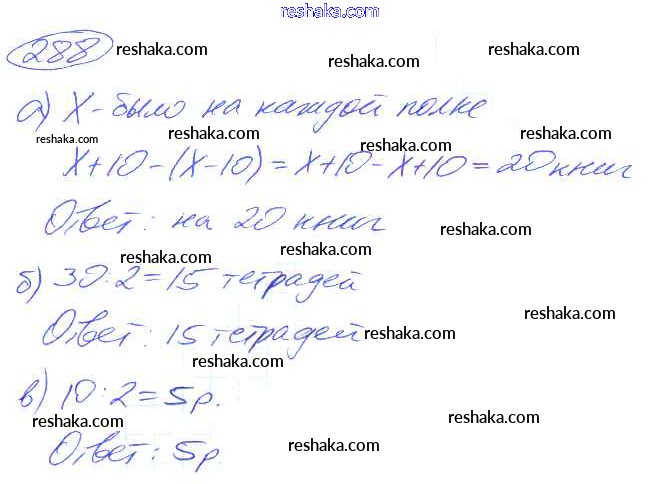 reshaka.com
288 reshaka.com reshaka.com reshaka.com
а) X - было на каждой полке
reshaka.com reshaka.com reshaka.com reshaka.com
X+10-(X-10)=X+10-X+10=20 книг
Ответ: на 20 книг
reshaka.com reshaka.com reshaka.com
б) 30:2=15 тетрадей
reshaka.com
Ответ: 15 тетрадей reshaka.com
reshaka.com
в) 10:2=5р.
reshaka.com reshaka.com
Ответ: 5р
reshaka.com reshaka.com